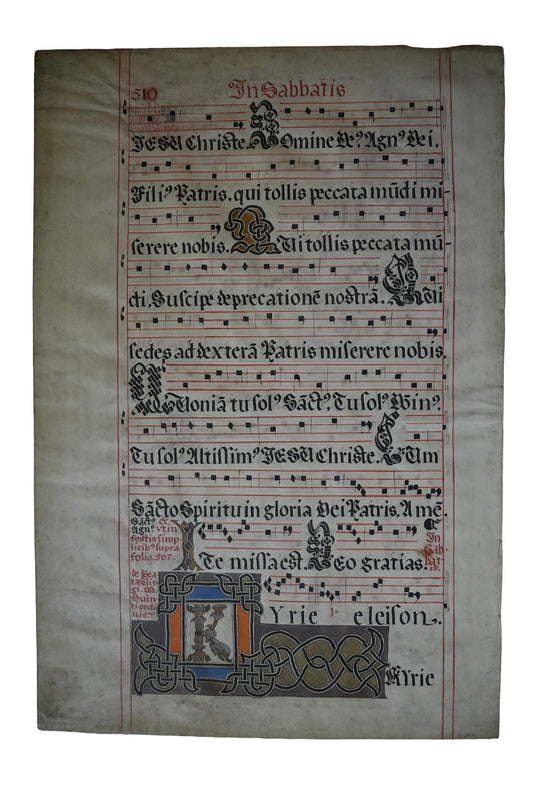 510 In Sabbatis
JESU Christe. Domine De9 Agn9 Dei.
Fili9 Patris. qui tollis peccata mūdi mi-
serere nobis. Qui tollis peccata mū-
di, Suscipe deprecationē nostrā. Qui
sedes ad dexterā Patris miserere nobis.
Quoniā tu sol9 Sāct9, Tu sol9 Dōin9.
Tu sol9 Altissim9 JESU Christe. Cum
Sācto Spiritu in gloria Dei Patris. Amē.
Sāct9 &
Agn9 vt in
festis simp-
licib9 supra
folio. 507.
Ite missa est. Deo gratias.
In
Sab-
bat
de Bea-
ta
Kyrie eleison.
Kyrie